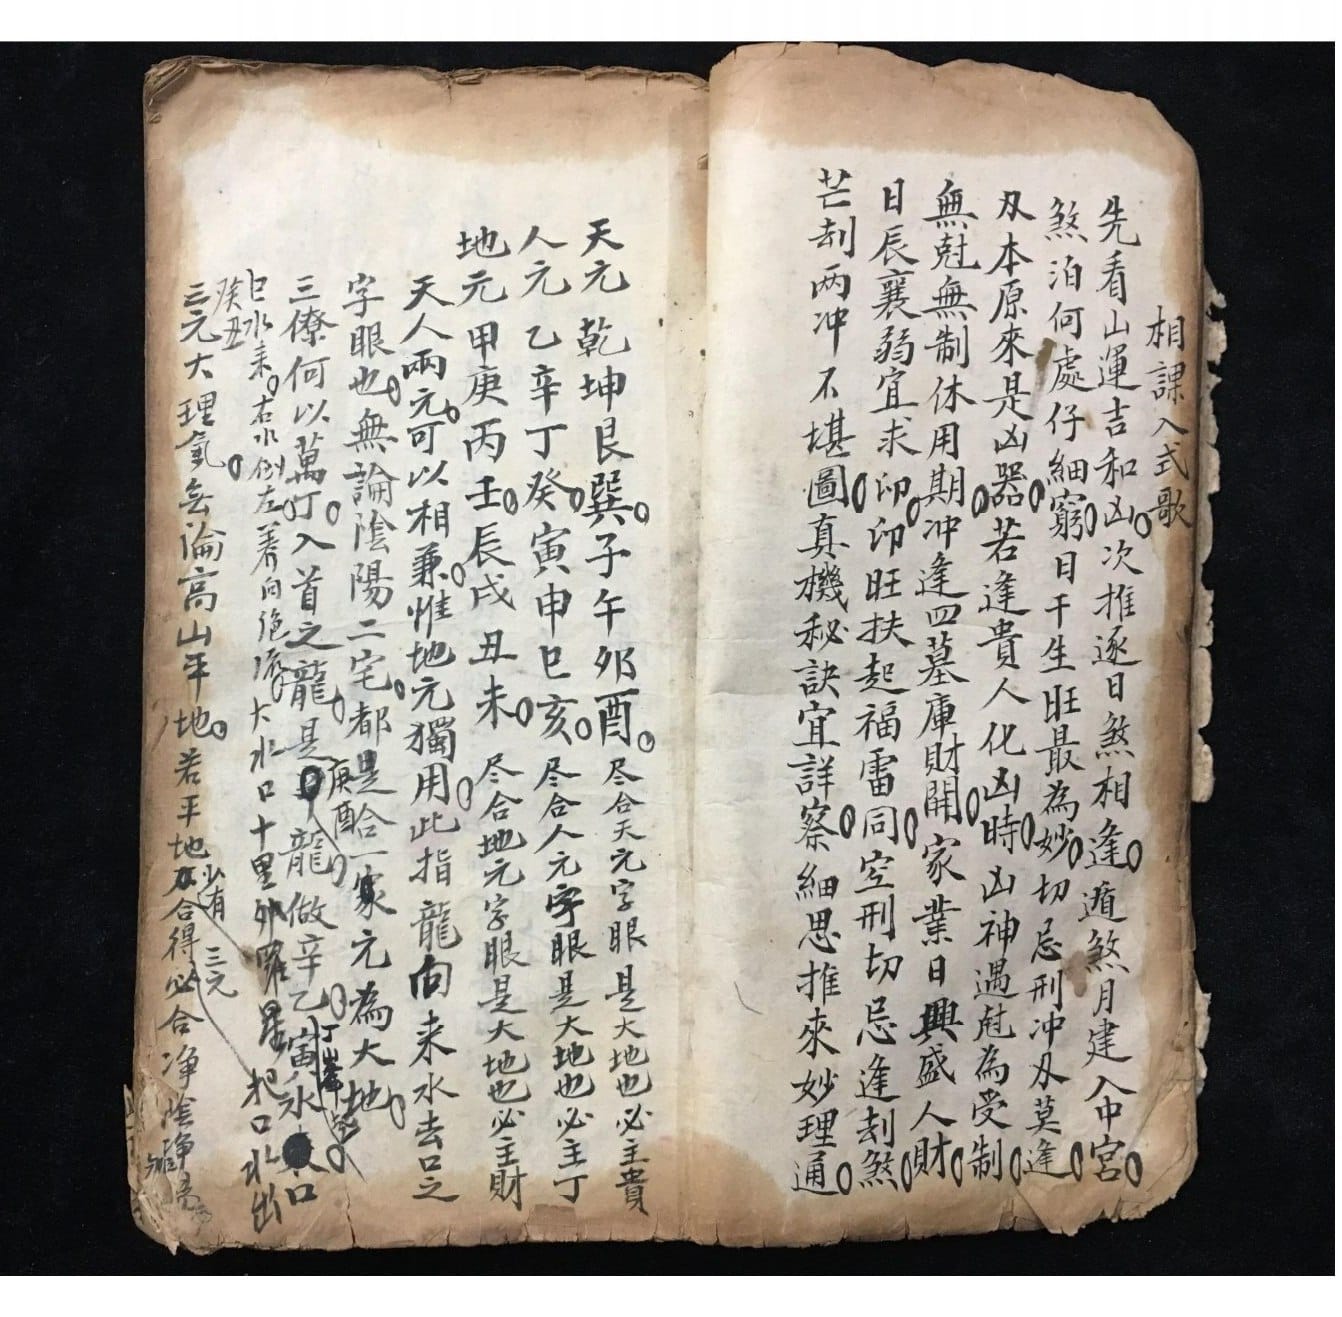 相課入式歌
先看山運吉和凶次推逐日煞相逢遁煞月建入中宮
煞泊何處仔細窮日干生旺最為妙切忌刑冲刄莫逢
刄本原來是凶器若逢貴人化凶時凶神遇尅為受制
無尅無制休用期冲逢四墓庫財開家業日興盛人財
日辰襄弱宜求印印旺扶起福雷同空刑切忌逢刦煞
芒刦两冲不堪圖真機秘訣宜詳察細思推來妙理通
天元乾坤艮巽子午夘酉尽合天元字眼是大地也必主貴
人元乙辛丁癸寅申巳亥尽合人元字眼是大地也必主丁
地元甲庚丙壬辰戌丑未尽合地元字眼是大地也必主財
天人兩元可以相兼惟地元獨用此指龍向来水去口之
字眼也無論陰陽二宅都是合一家元為大地
庚酉
三僚何以萬丁入首之龍是龍做辛乙寅水口
丁峯
巳水来右水倒左兼向絕流大水口十里外羅星把口北出
癸丑
三元大理氣無論高山平地若平地合得必合净陰净
少有三元